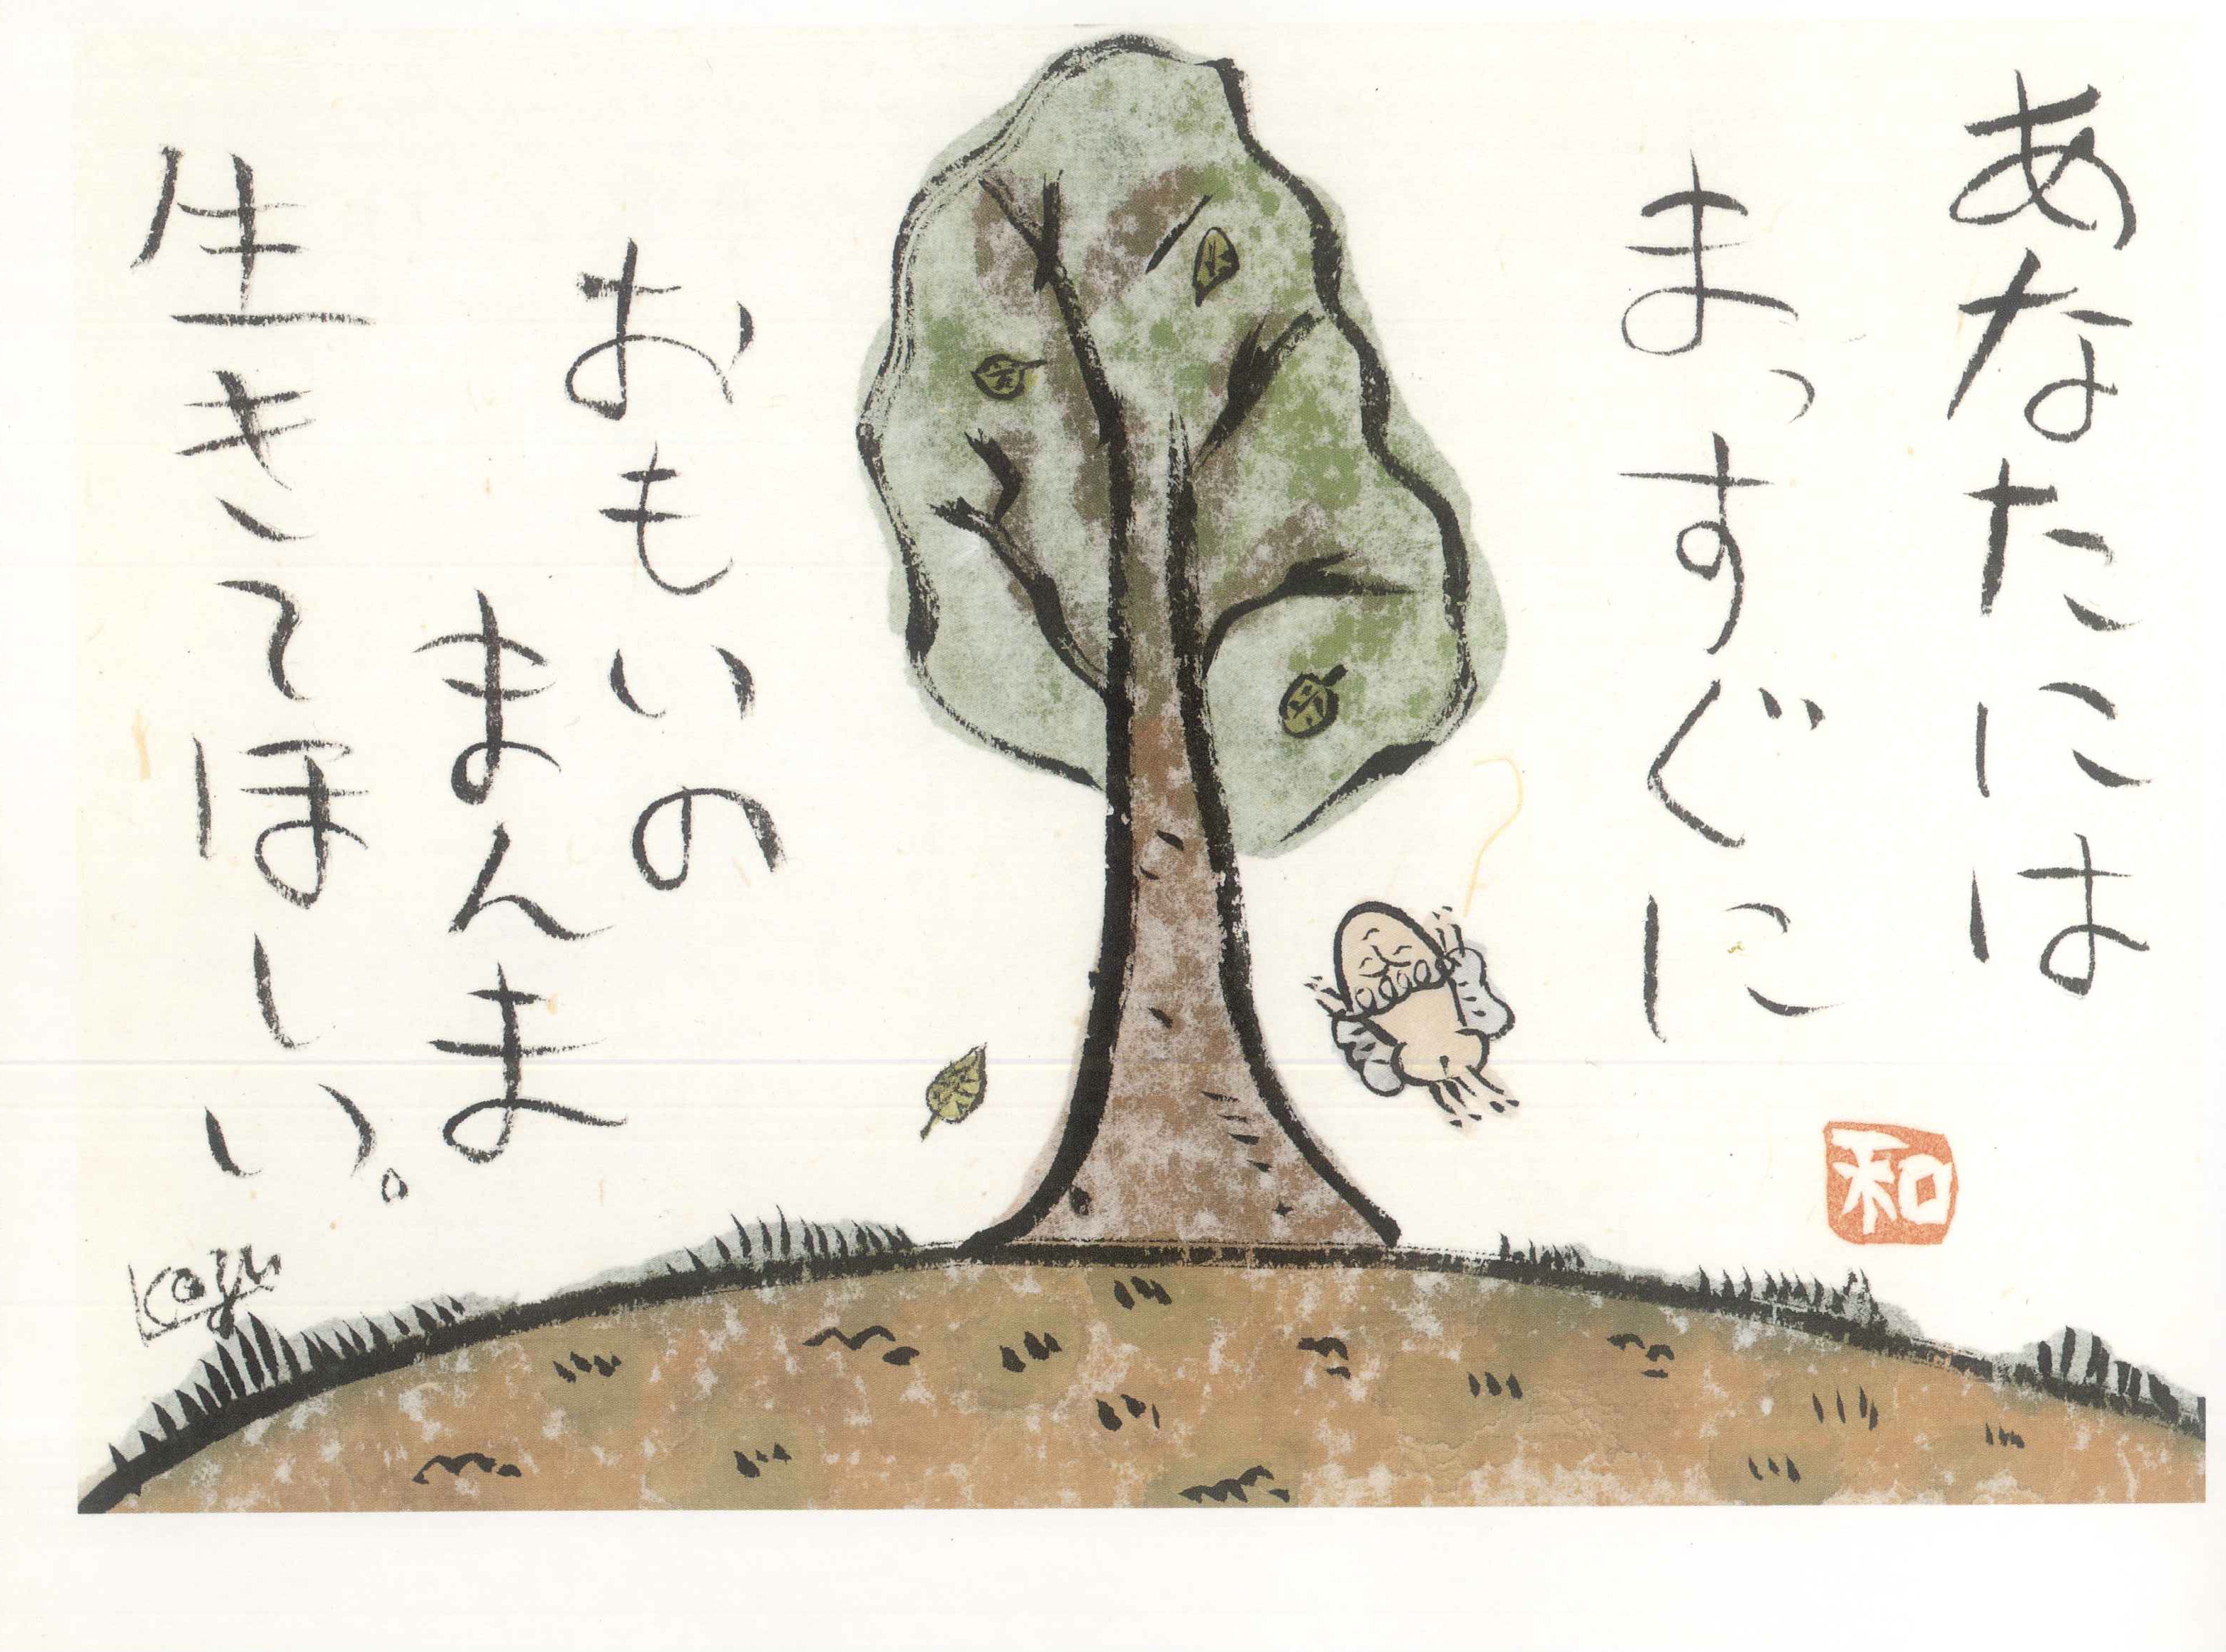 あなたには
まっすぐに
おもいの
まんま
生きてほしい。
Kazu
和